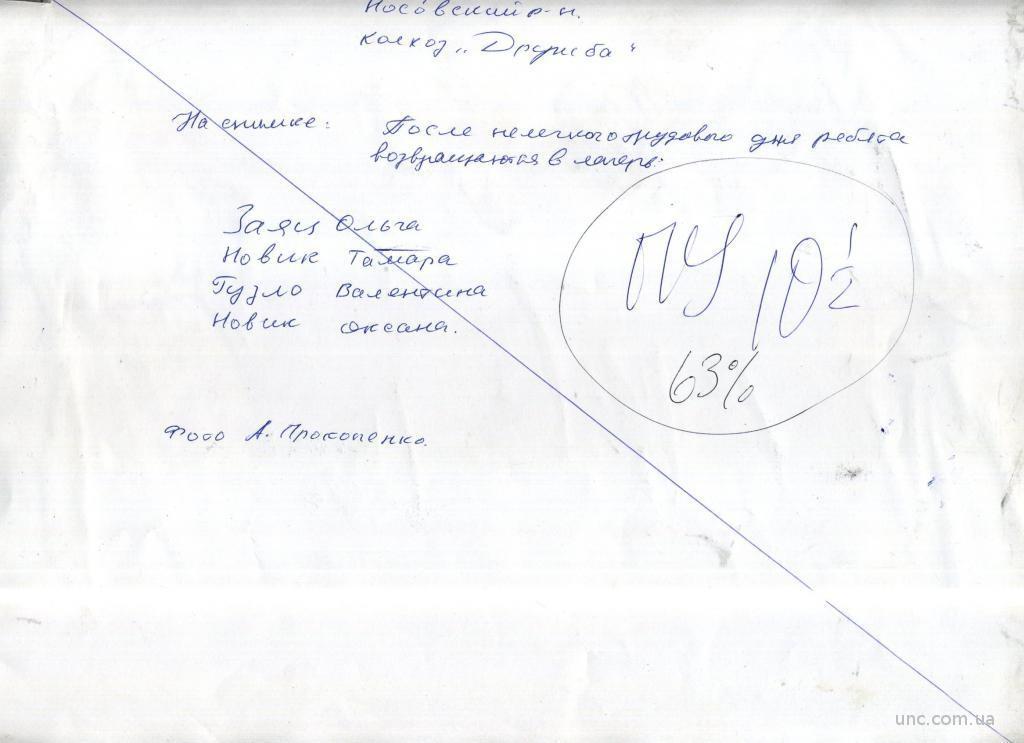 Носовский р-н.
колхоз „Дружба"
На снимке: После нелегкого трудового дня ребята
возвращаются в лагерь.
Заяц Ольга
Новик Тамара
Гузло Валентина
Новик Оксана.
ПУ 10 1/2
63%
Фото А. Прокопенко.
unc.com.ua